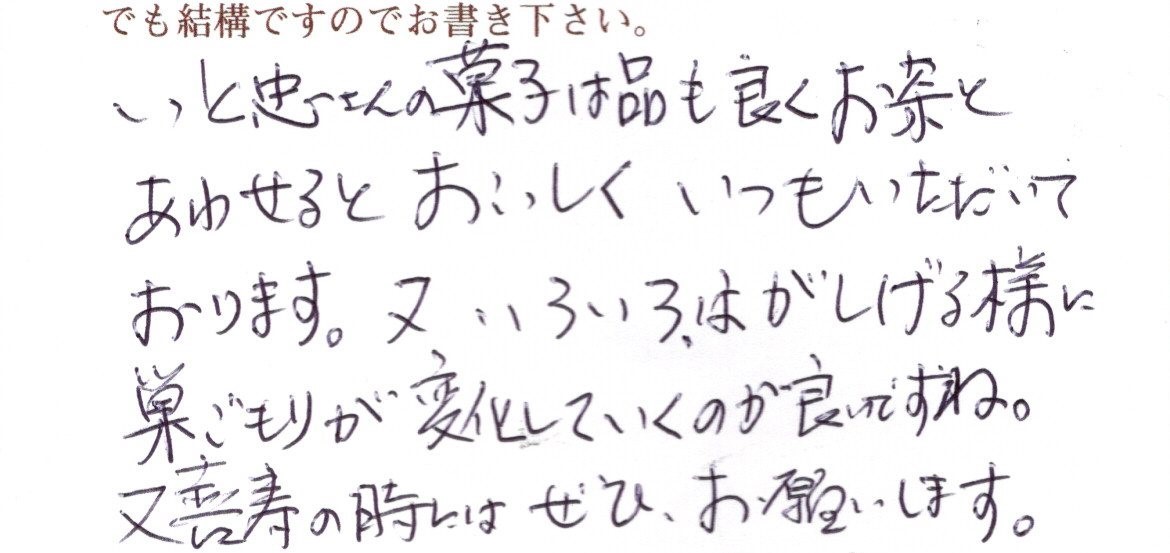 でも結構ですのでお書き下さい。
いと忠さんの菓子は品も良くお茶と
あわせるとおいしく いつもいただいて
おります。又 いろいろ、はがしげる様に
巣ごもりが変化していくのが良いですね。
又喜寿の時にはぜひ、お願いします。